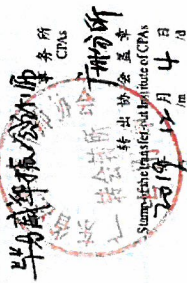 毕马威华振会计师
事务所
CPAs
广州分所
转出协会盖章
Stamp of the transfer-out Institute of CPAs
年 12月 4日
/m /d